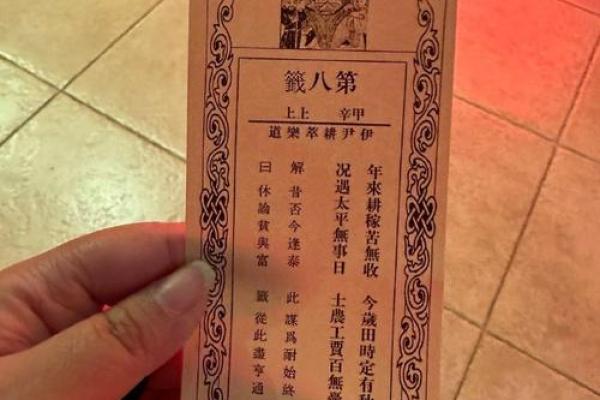 第八籤
甲辛 上上
伊尹耕萃樂道
年來耕稼苦無收 今歲田時定有
况遇太平無事日 士農工賈百無
解 昔否今逢泰 此 謀爲耐始終
曰 休論貧與富 籤 從此盡亨通